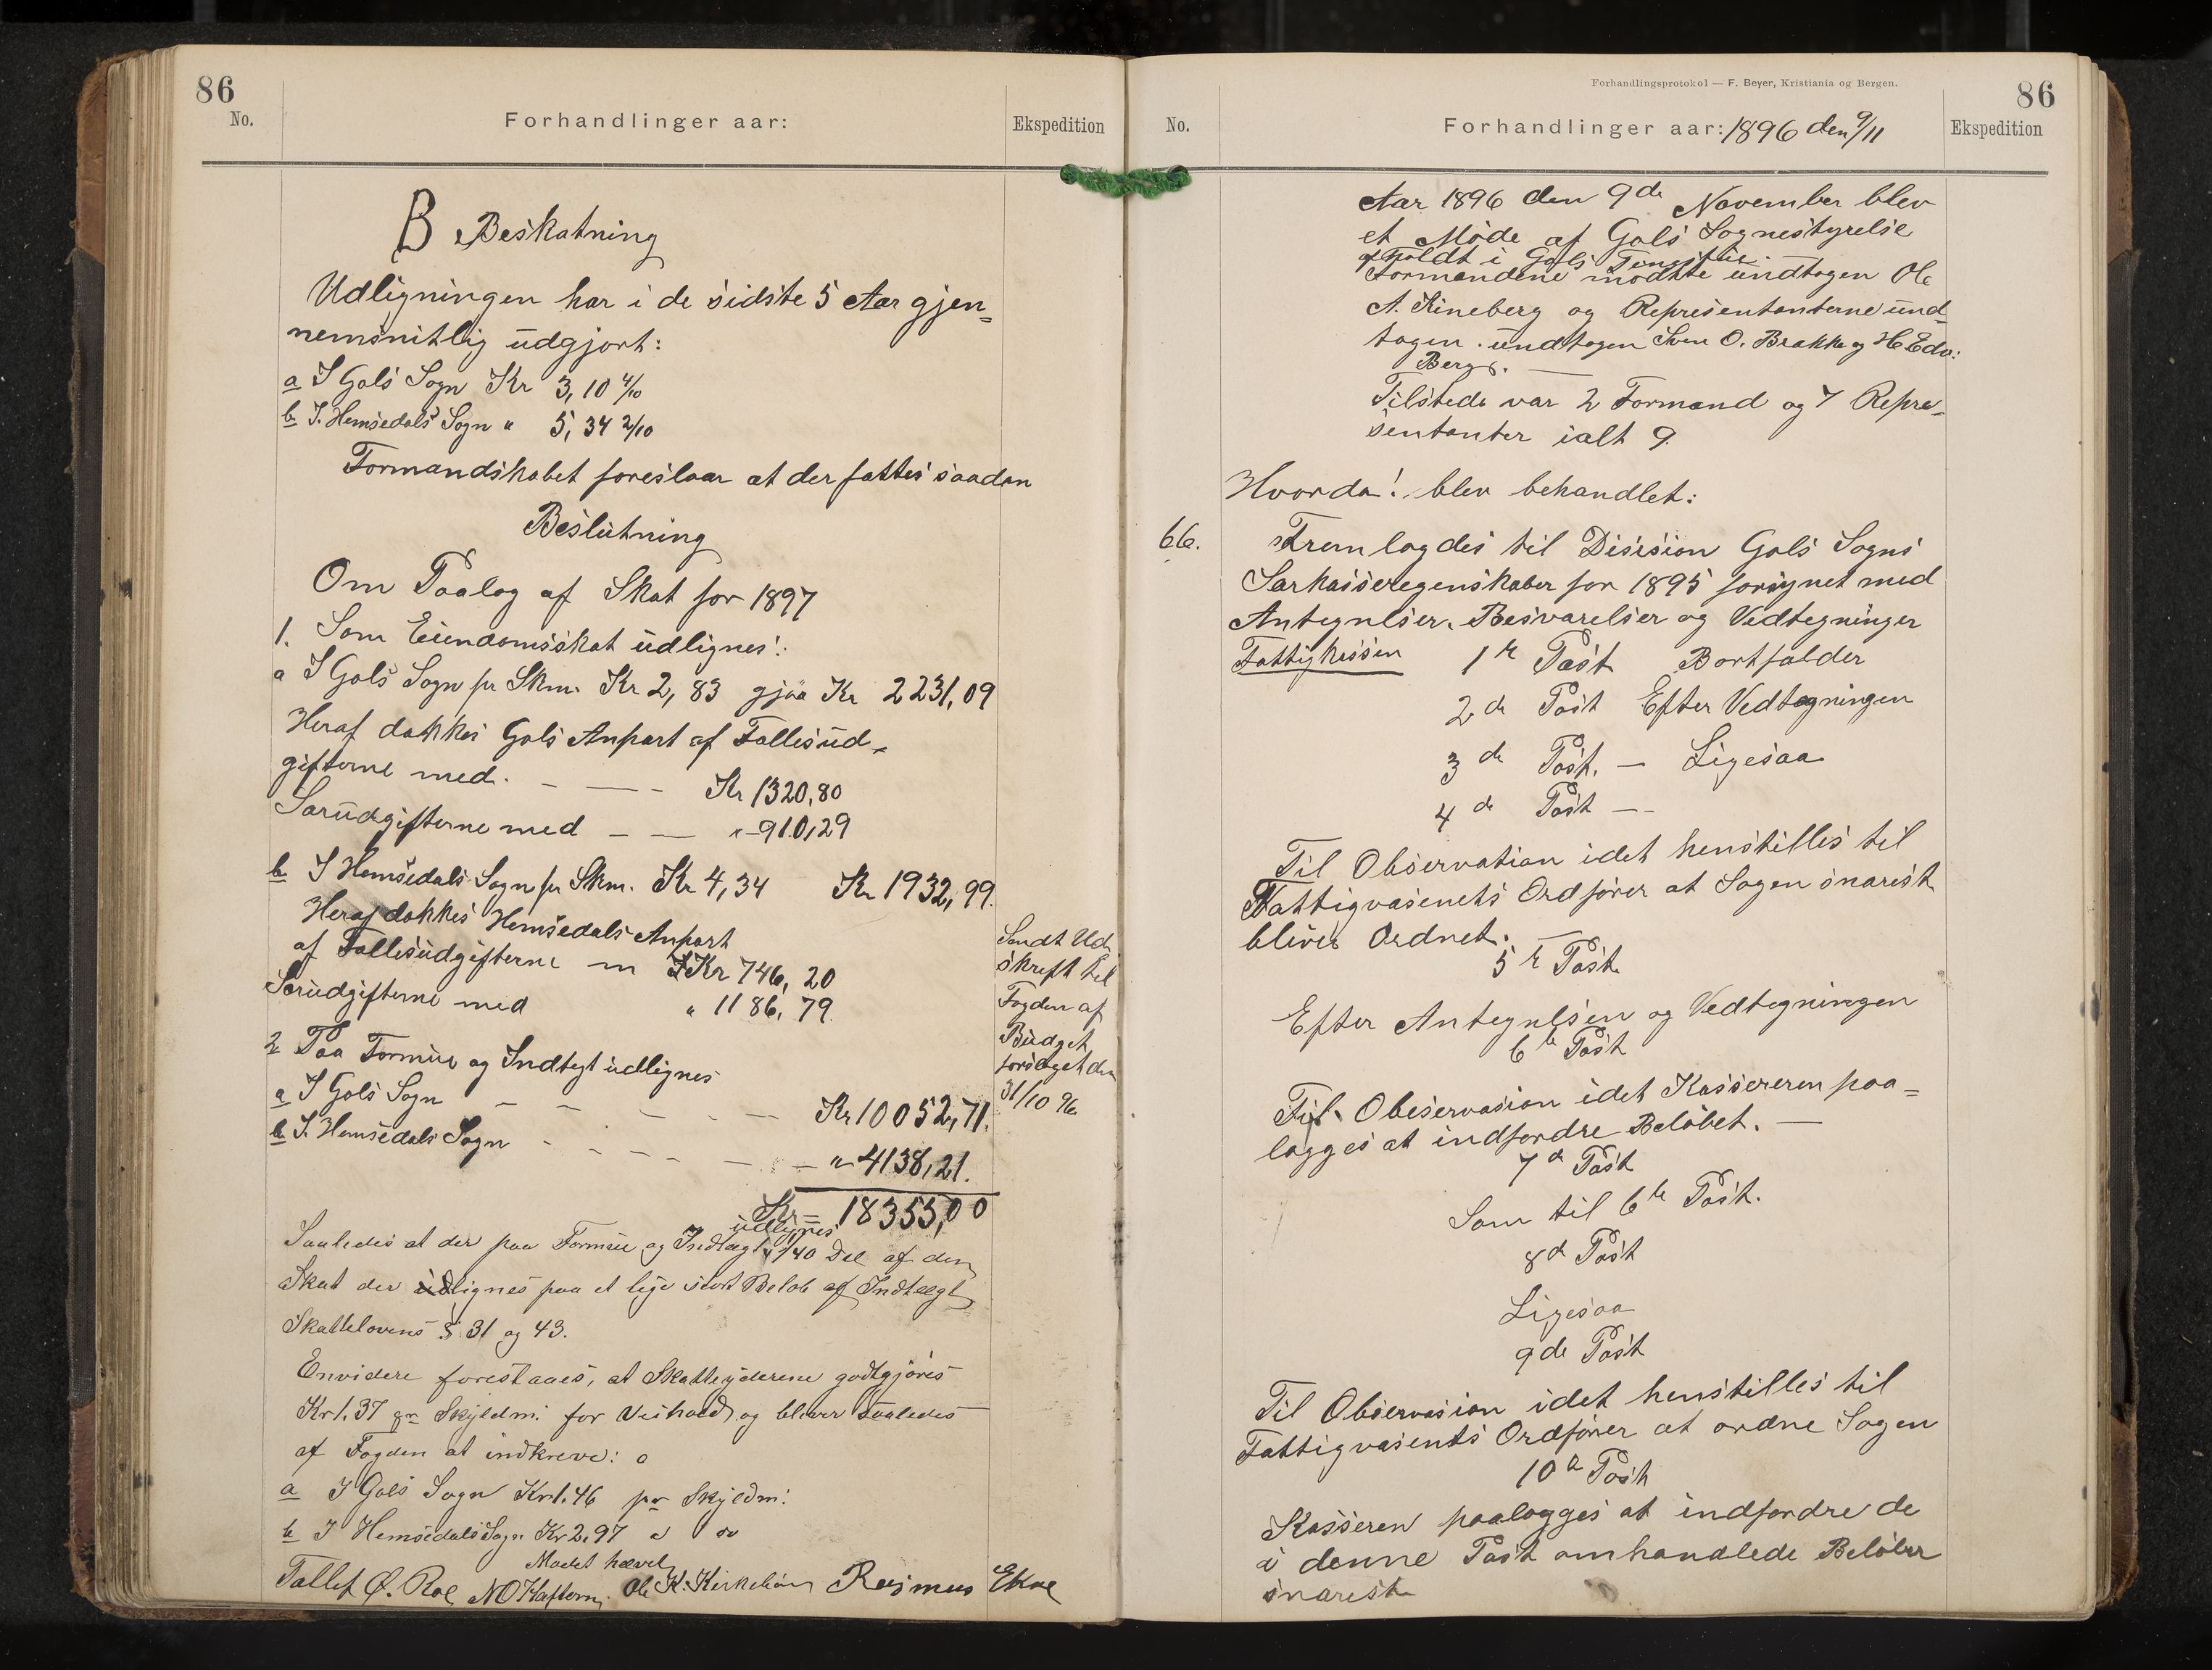 86
No.
Forhandlinger aar:
Ekspedition
B Beskatning
Udligningen har i de sidste 5 Aar gjen-
nemsnitlig udgjort:
a I Gols Sogn Kr 3,10 4/10
b I. Hemsedals Sogn " 5,34 2/10
Formandskabet foreslaar at der fattes saadan
Beslutning
Om Paalag af Skat for 1897
1. Som Eiendomsskat udlignes:
a I Gols Sogn pr Skm. Kr 2,83 gjør Kr 2231,09
Heraf dækkes Gols Anpart af Fællesud-
gifterne med. - - - Kr 1320,80
Særudgifterne med - - " 910,29
b I Hemsedals Sogn pr Skm. Kr 4,34 Kr 1932,99.
Heraf dækkes Hemsedals Anpart
af Fællesudgifterne m Kr 746,20
Særudgifterne med " 1186,79
2 Paa Formue og Indtægt udlignes
a I Gols Sogn - - - - - Kr 10052,71.
b I. Hemsedals Sogn - - - - - " 4138,21.
Kr = 18355,00
Saaledes at der paa Formue og Indtægt udlignes 1/40 Del af den
Skat der udlignes paa et lige stort Beløb af Indtægt
Skattelovens § 31 og 43.
Envidere foreslaaes, at Skatteyderene godtgjøres
Kr 1.37 pr Skyldm. for Veihold og bliver saaledes
af Fogden at indkreve:
a I Gols Sogn Kr 1.46 pr Skyldm:
b I Hemsedals Sogn Kr 2,97 " "
Mødet hævet
Tollef Ø. Roe NO Haftorn Ole K. Kirkebøen Rasmus Ekre
Sendt Ud
skrift til
Fogden af
Budget
forslaget den
31/10 96
Forhandlingsprotokol — F. Beyer, Kristiania og Bergen.
86
No.
Forhandlinger aar: 1896 den 9/11
Ekspedition
Aar 1896 den 9de November blev
et Møde af Gols Sognestyrelse
afholdt i Gols
Formændene mødte undtagen Ole
A. Rineberg og Representanterne und-
tagen. undtagen Sven O. Brakke og H Edv:
Berg. —
Tilstede var 2 Formænd og 7 Repre-
sentanter ialt 9.
Hvorda! blev behandlet:
66. Fremlagdes til Disision Gols Sogns
Særkasseregenskaber for 1895 forsynet med
Antegnelser, Besvarelser og Vedtegninger
Fattigkassen 1te Post Bortfalder
2de Post Efter Vedtegningen
3de Post. — Ligesaa
4de Post —
Til Observation idet henstilles til
Fattigvæsenets Ordfører at Sagen snarest
bliver Ordnet.
5te Post
Efter Antegnelsen og Vedtegningen
6te Post
Til Obeservasion idet Kassereren paa-
lægges at indfordre Beløbet. —
7de Post
Som til 6te Post.
8de Post
Ligesaa
9de Post
Til Observasion idet henstilles til
Fattigvæsents Ordfører at ordne Sagen
10de Post
Kasseren paalægges at indfordre de
i denne Post omhandlede Beløber
snarest